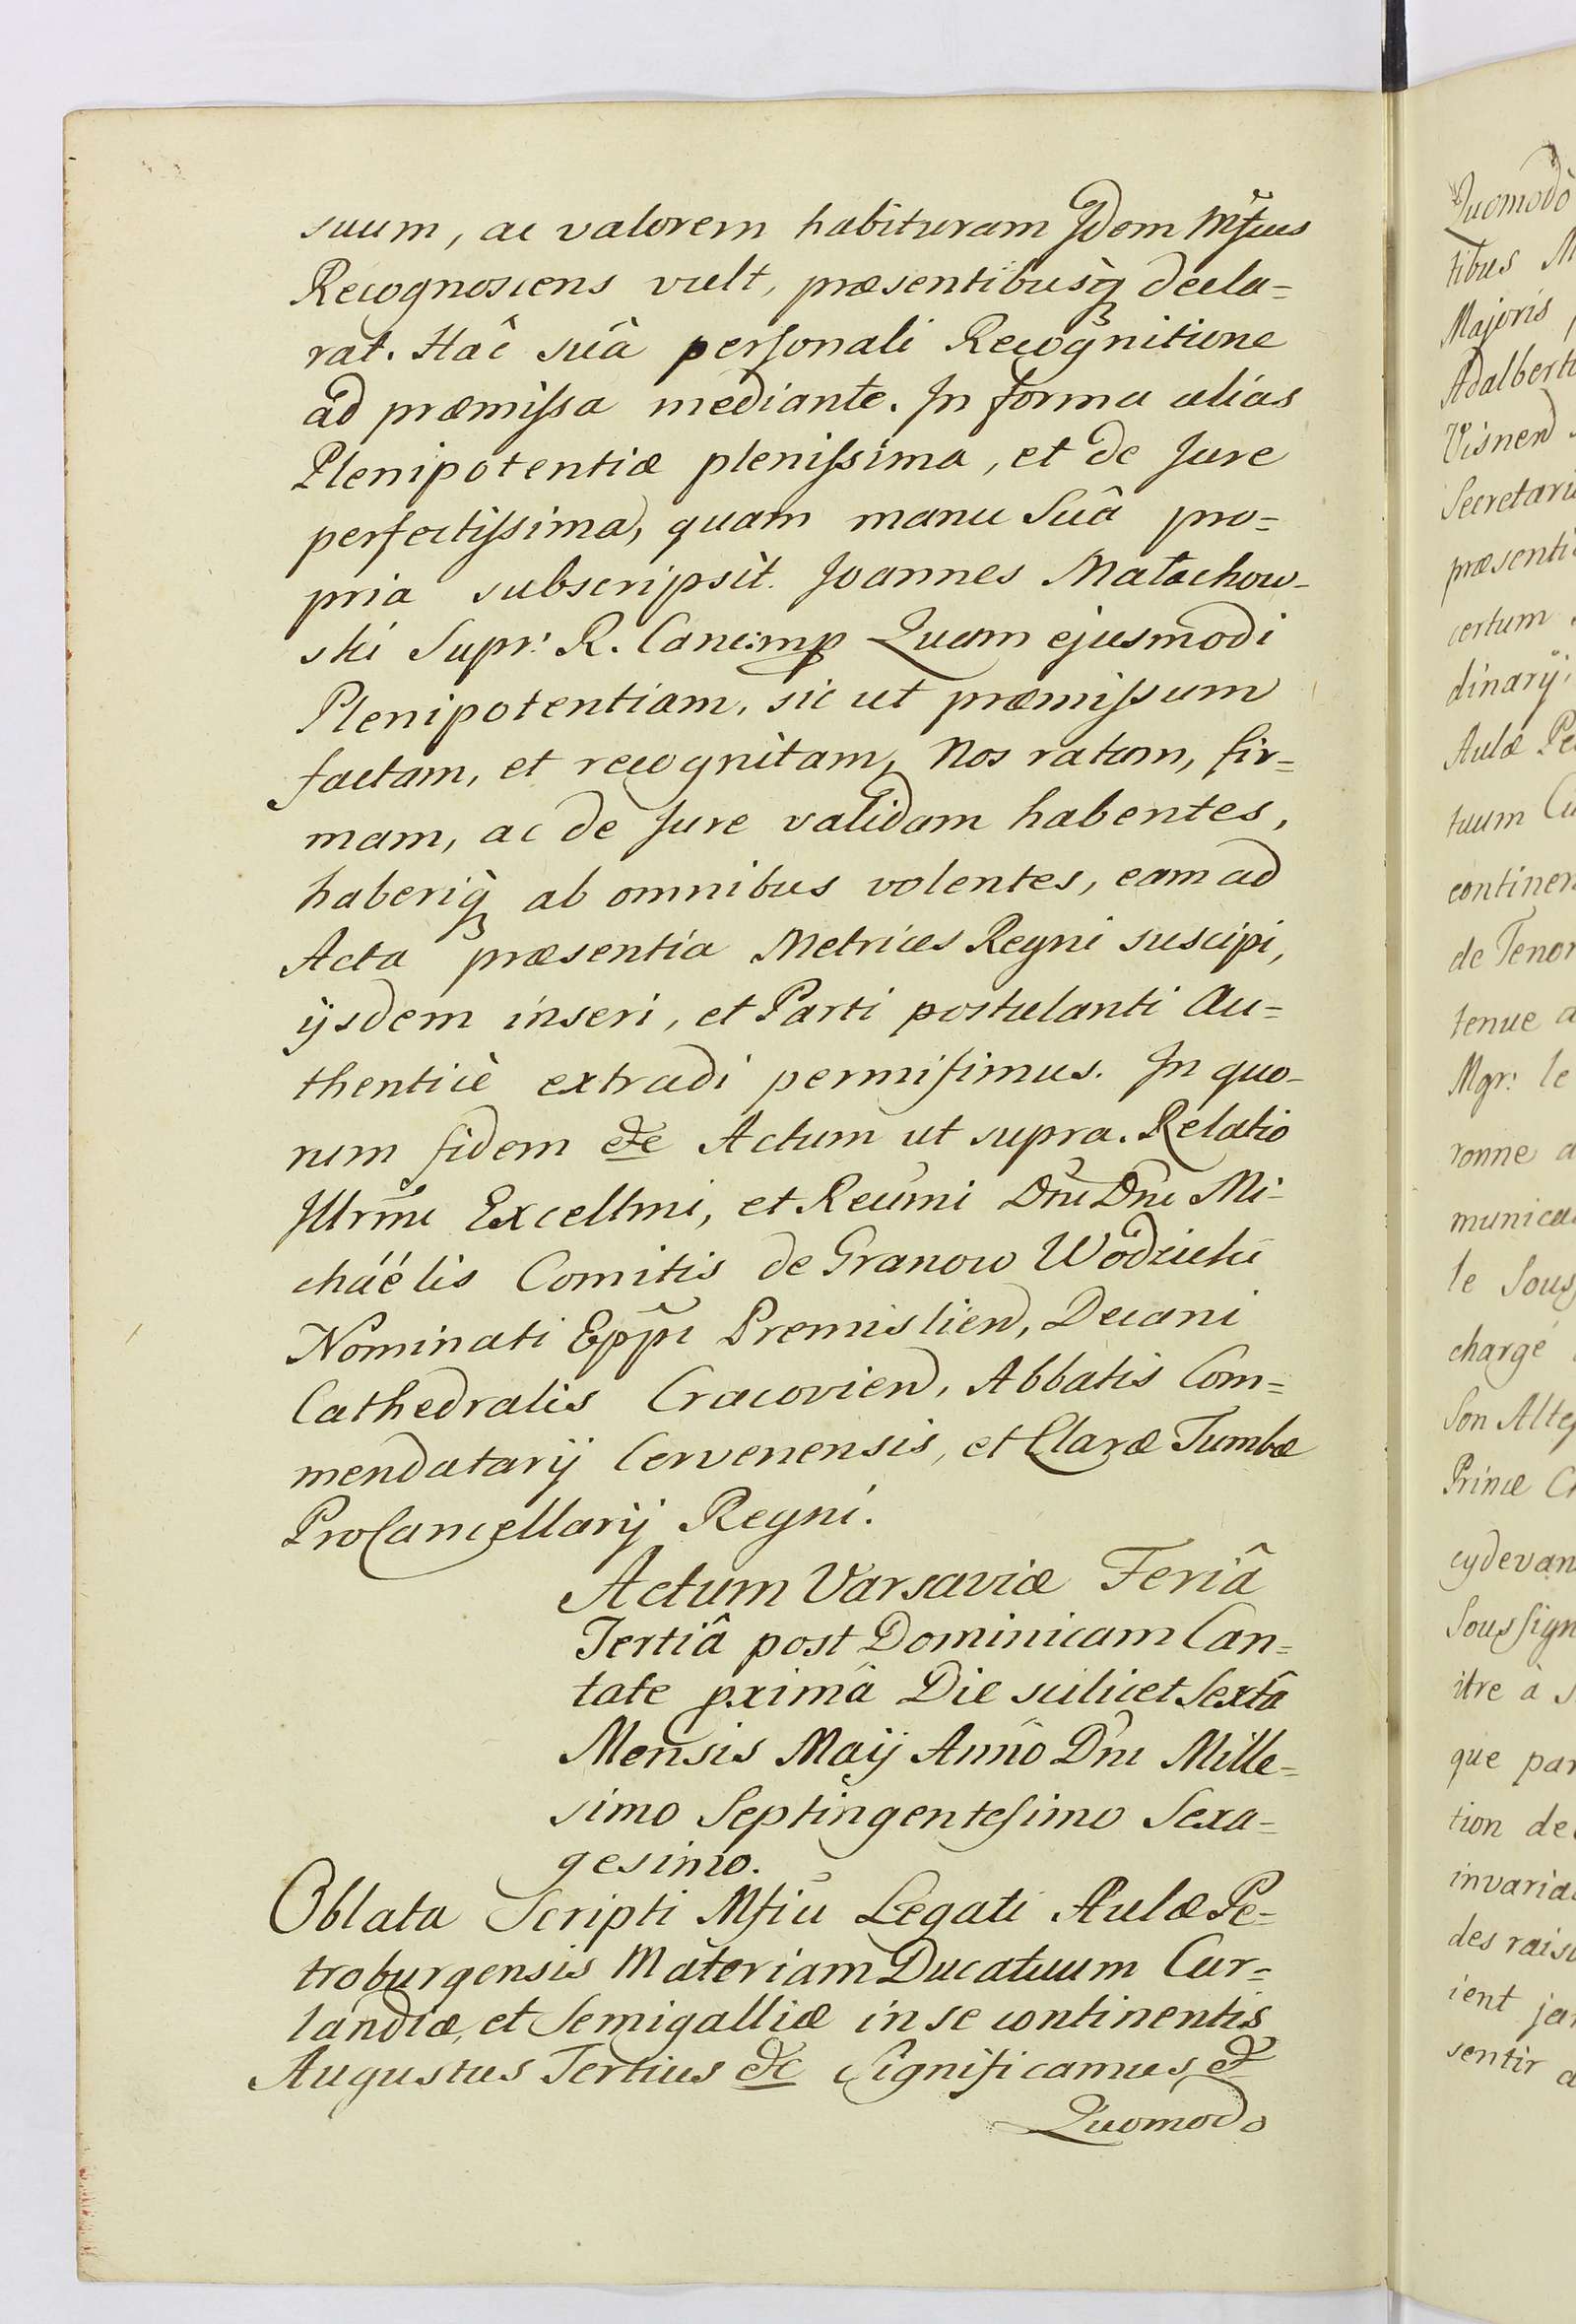 suum, ac valorem habituram Jdem Mfcus
Recognoscens vult, præsentibusq̃ decla=
rat. Hâc suâ perſonali Recognitione
ad præmiſsa mediante. In forma alias
Plenipotentiæ pleniſsima, et de Jure
perfectiſsima, quam manu Suâ pro=
pria subscripsit. Joannes Małachow-
ski Supr: R. Canc: mp Quam ejusmodi
Plenipotentiam, sic ut præmiſsum
factam, et recognitam, Nos ratam, fir=
mam, ac de Jure validam habentes,
haberiq̃ ab omnibus volentes, eam ad
Acta præsentia Metrices Regni suscipi,
ijsdem inseri, et Parti postulanti Au=
thenticè extradi permiſimus. In quo-
rum fidem &c Actum ut supra. Relatio
Jllrm̃i Excellm̃i, et Reum̃i Dn̄i Dn̄i Mi-
chaélis Comitis de Granow Wodzicki
Nominati Epp̃i Premislien, Decani
Cathedralis Cracovien, Abbatis Com=
mendatarij Cervenensis, et Claræ Tumbæ
ProCancellarij Regni.
Actum Varsaviæ Feriâ
Tertiâ post Dominicam Can=
tate p̱ximâ Die scilicet Sextâ
Mensis Maij Anno Dn̄i Mille=
simo Septingenteſimo Sexa=
gesimo.
Oblata Scripti Mfici Legati Aulæ Pe=
troburgensis Materiam Ducatuum Cur=
landiæ, et Semigalliæ in se continentis
Augustus Tertius &c Significamus &
Quomodo
Quomodò
tibus M
Majoris
Adalberti
Visnen
Secretari
præsenti
certum
dinarij
Aulæ Pe
tuum Cu
continen
de Tenor
tenue a
Mgr: le
ronne a
munica
le Sous
chargé
Son Alteſ
Prince Ch
cydevan
Sousſign
itre à s
que par
tion de
invaria
des raiso
ient ja
sentir a